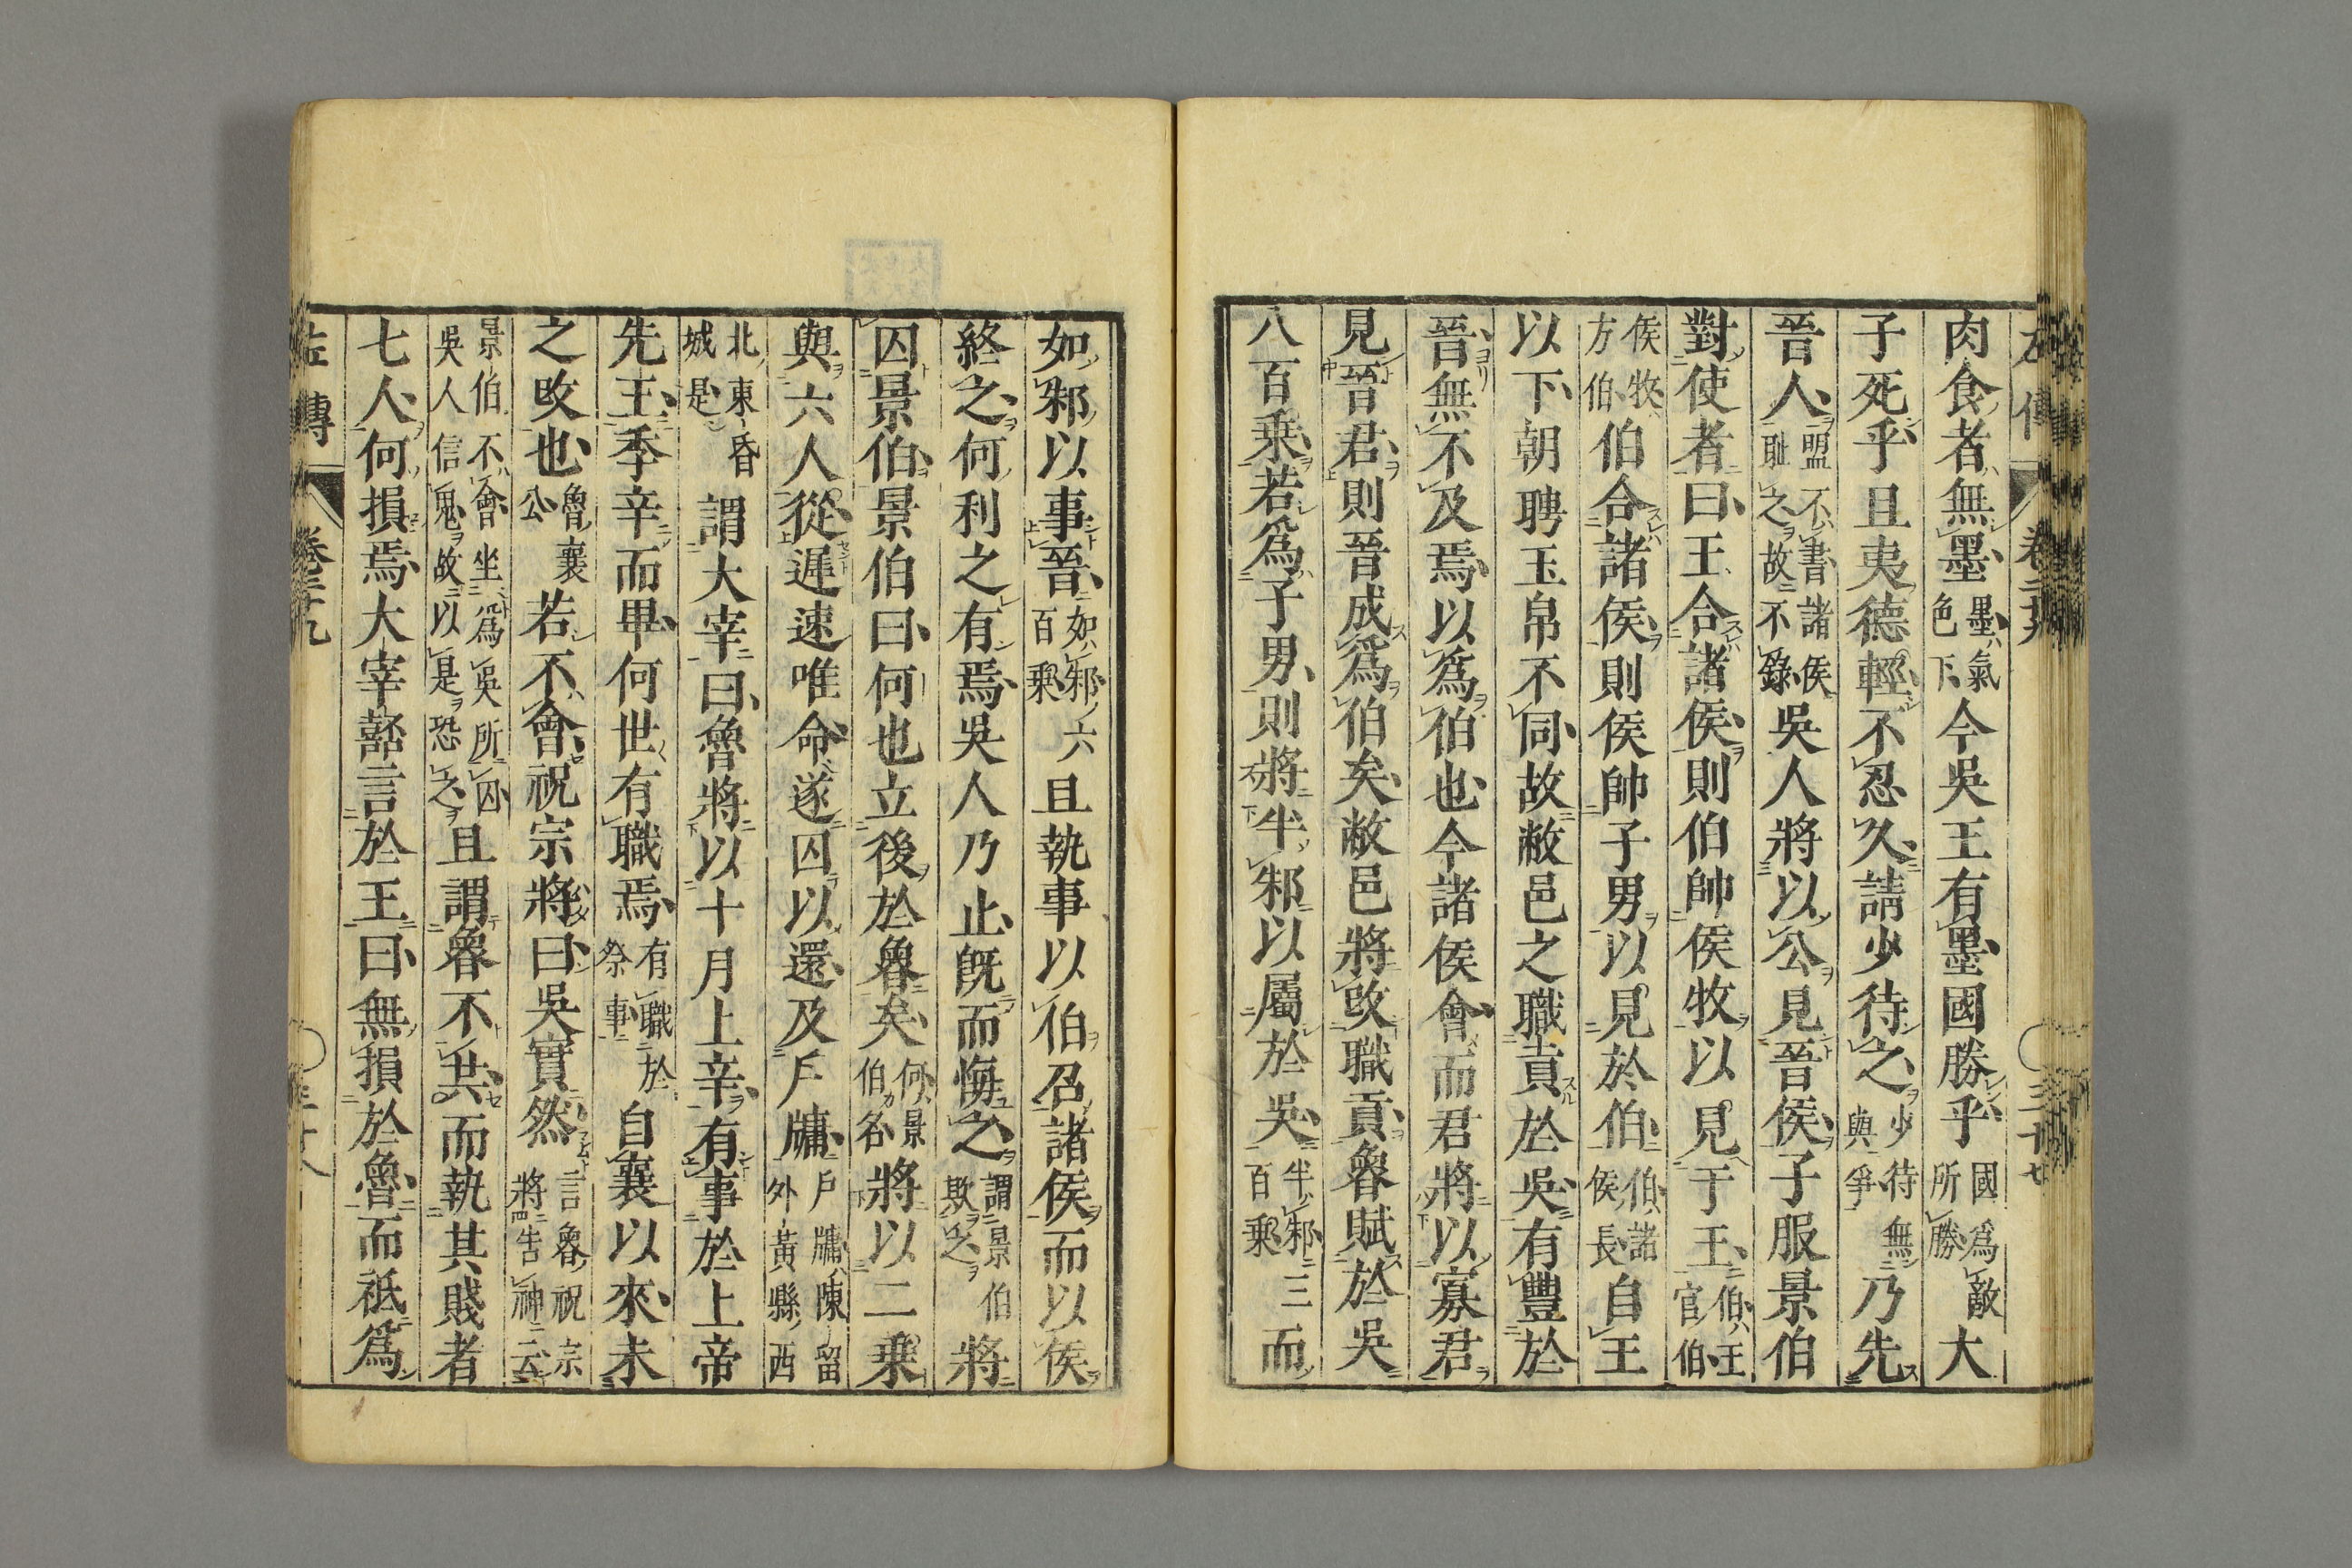 左傳 卷二十九 三十七
肉食者無墨墨氣色下今吳王有墨國勝乎國爲敵所勝大
子死乎且夷德輕不忍久請少待之少待無與爭乃先
晉人盟不書諸侯恥之故不錄吳人將以公見晉侯子服景伯
對使者曰王合諸侯則伯帥侯牧以見于王伯王官伯
侯牧方伯伯合諸侯則侯帥子男以見於伯伯諸侯長自王
以下朝聘玉帛不同故敝邑之職貢於吳有豐於
晉無不及焉以爲伯也今諸侯會而君將以寡君
見晉君則晉成爲伯矣敝邑將改職貢魯賦於吳
八百乘若爲子男則將半邾以屬於吳半邾三百乘而
如邾以事晉如邾六百乘且執事以伯召諸侯而以侯
終之何利之有焉吳人乃止既而悔之謂景伯欺之將
囚景伯景伯曰何也立後於魯矣何景伯名將以二乘
與六人從遲速唯命遂囚以還及戶牖戶牖陳留外黃縣西
北東昏城是謂大宰曰魯將以十月上辛有事於上帝
先王季辛而畢何世有職焉有職於祭事自襄以來未
之改也魯襄公若不會祝宗將曰吳實然言魯祝宗將告神云
景伯不會坐爲吳所囚吳人信鬼故以是恐之且謂魯不共而執其賤者
七人何損焉大宰嚭言於王曰無損於魯而祗爲
左傳 卷二十九 三十八